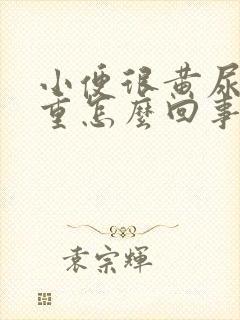 小便很黄尿
重怎麼回事
袁宗輝